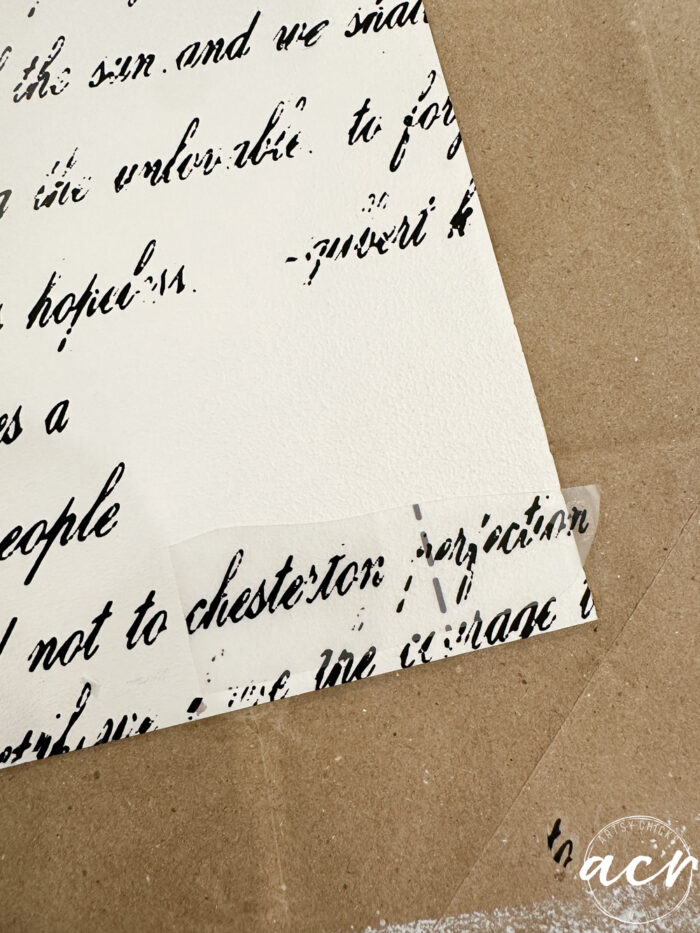 the sun. and we shall
the unlovable. to for
hopeless. -gilbert k
es a
eople
not to chesterton perfection
the courage
to
ARTSY CHICKS
acr